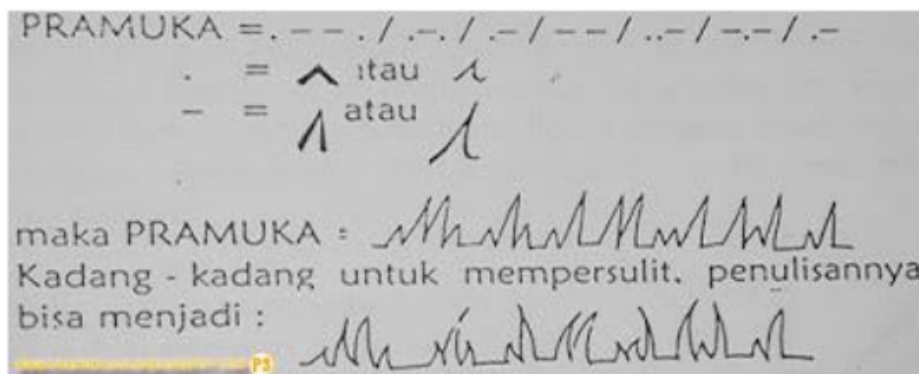 PRAMUKA = . – – . / .–. / .– / – – / ..– / –.– / .–
. = itau
– = atau
maka PRAMUKA :
Kadang - kadang untuk mempersulit. penulisannya
bisa menjadi :
P3